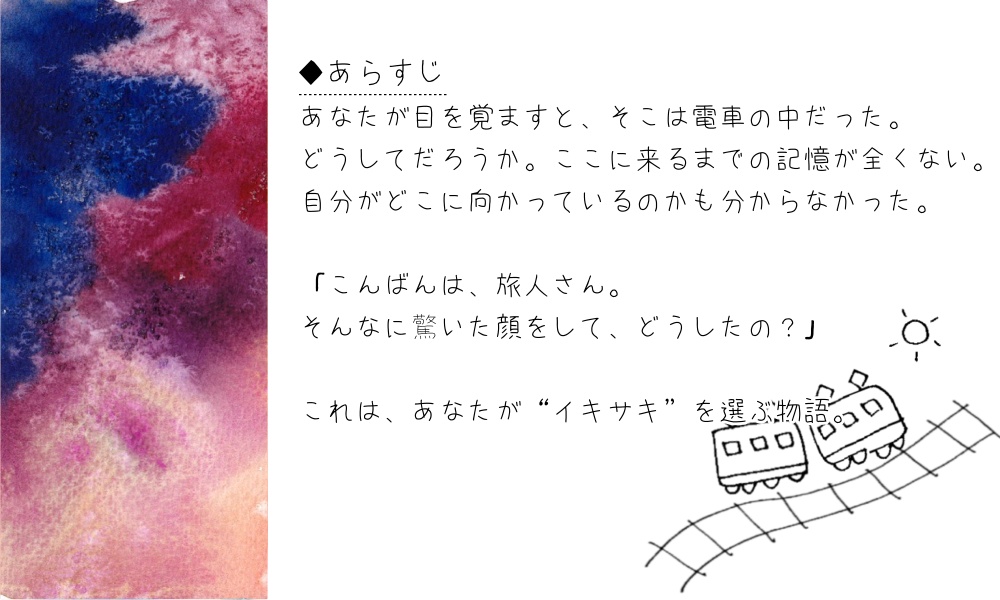 ◆あらすじ
あなたが目を覚ますと、そこは電車の中だった。
どうしてだろうか。ここに来るまでの記憶が全くない。
自分がどこに向かっているのかも分からなかった。
「こんばんは、旅人さん。
そんなに驚いた顔をして、どうしたの？」
これは、あなたが“イキサキ”を選ぶ物語。